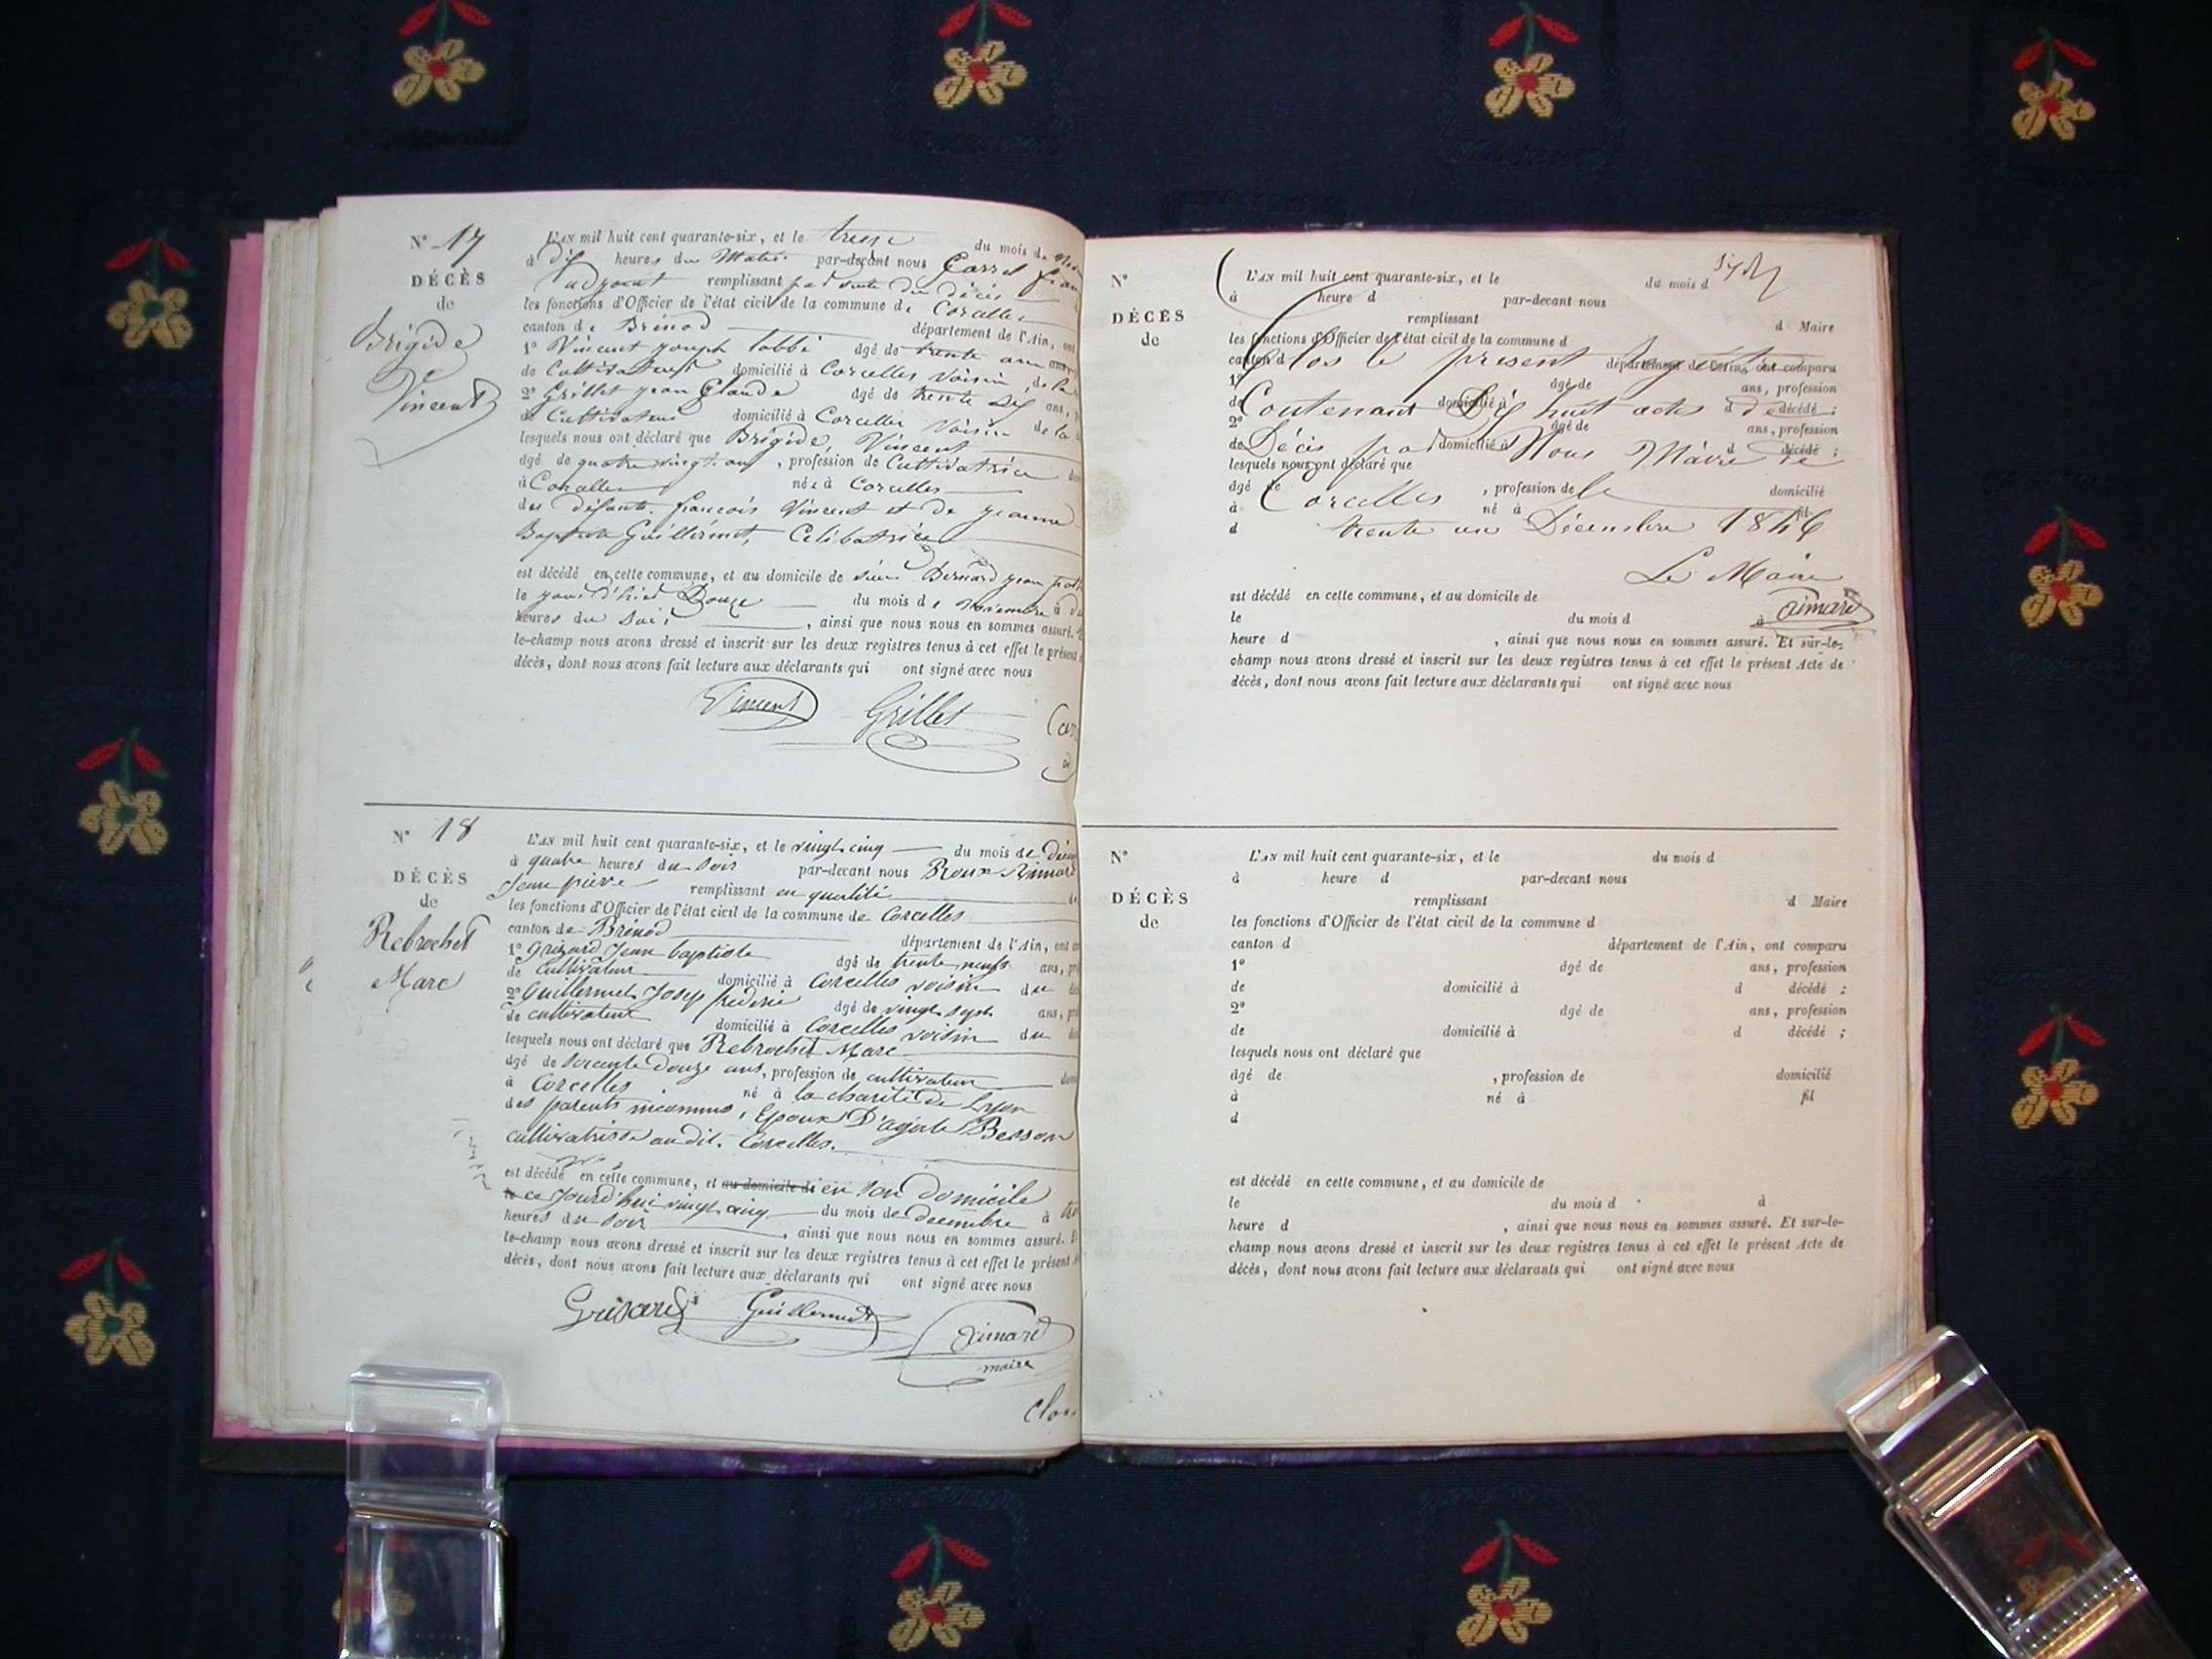 N° 17
DÉCÈS
de
Brigide
Vincent
L'AN mil huit cent quarante-six, et le treise du mois de
à dix heures du Matin par-devant nous
adjoint remplissant par suite du décès
les fonctions d'Officier de l'état civil de la commune de Corcelles
canton de Brénod département de l'Ain, ont
1° Vincent joseph âgé de trente ans
de Cultivateur domicilié à Corcelles Voisin de la
2° Grillet jean Claude âgé de trente six ans,
de Cultivateur domicilié à Corcelles Voisin de la
lesquels nous ont déclaré que Brigide Vincent
âgé de quatre vingt ans, profession de Cultivatrice
à Corcelles née à Corcelles
des défunts françois Vincent et de jeanne
Baptiste Guillermet, Célibatrice
est décédé en cette commune, et au domicile de sieur Bernard jean
le jour d'hier Douze du mois de Novembre à
heures du Soir, ainsi que nous nous en sommes assuré.
le-champ nous avons dressé et inscrit sur les deux registres tenus à cet effet le présent
décès, dont nous avons fait lecture aux déclarants qui ont signé avec nous
Vincent Grillet
N° 18
DÉCÈS
de
Rebrochet
Marc
L'AN mil huit cent quarante-six, et le vingt cinq du mois de
à quatre heures du soir par-devant nous Roux
Jean pierre remplissant en qualité
les fonctions d'Officier de l'état civil de la commune de Corcelles
canton de Brénod département de l'Ain, ont
1° Grisard Jean baptiste âgé de trente neufs ans,
de Cultivateur domicilié à Corcelles voisin du
2° Guillermet Josep frederic âgé de vingt sept ans,
de cultivateur domicilié à Corcelles voisin du
lesquels nous ont déclaré que Rebrochet Marc
âgé de soixante douze ans, profession de cultivateur
à Corcelles né à la charité de Lyon
des parents inconnus, Epoux D'agathe Besson
cultivatrisse audit Corcelles.
est décédé en cette commune, et au domicile de en son domicile
le ce Jourd'hui vingt cinq du mois de decembre à
heures du soir, ainsi que nous nous en sommes assuré.
le-champ nous avons dressé et inscrit sur les deux registres tenus à cet effet le présent
décès, dont nous avons fait lecture aux déclarants qui ont signé avec nous
Grisard Guillermet Aimard
maire
N°
DÉCÈS
de
L'AN mil huit cent quarante-six, et le du mois d
à heure d par-devant nous
remplissant d Maire
les fonctions d'Officier de l'état civil de la commune d
canton d département de l'Ain, ont comparu
Clos le present
1° âgé de ans, profession
de domicilié à d décédé ;
Contenant Dix huit actes de
2° âgé de ans, profession
de domicilié à d décédé ;
Décès par Nous Maire de
lesquels nous ont déclaré que
âgé de , profession de domicilié
Corcelles le
à né à fil
d
trente un Décembre 1846
Le Maire
Aimard
est décédé en cette commune, et au domicile de
le du mois d à
heure d , ainsi que nous nous en sommes assuré. Et sur-le-
champ nous avons dressé et inscrit sur les deux registres tenus à cet effet le présent Acte de
décès, dont nous avons fait lecture aux déclarants qui ont signé avec nous
N°
DÉCÈS
de
L'AN mil huit cent quarante-six, et le du mois d
à heure d par-devant nous
remplissant d Maire
les fonctions d'Officier de l'état civil de la commune d
canton d département de l'Ain, ont comparu
1° âgé de ans, profession
de domicilié à d décédé ;
2° âgé de ans, profession
de domicilié à d décédé ;
lesquels nous ont déclaré que
âgé de , profession de domicilié
à né à fil
d
est décédé en cette commune, et au domicile de
le du mois d à
heure d , ainsi que nous nous en sommes assuré. Et sur-le-
champ nous avons dressé et inscrit sur les deux registres tenus à cet effet le présent Acte de
décès, dont nous avons fait lecture aux déclarants qui ont signé avec nous